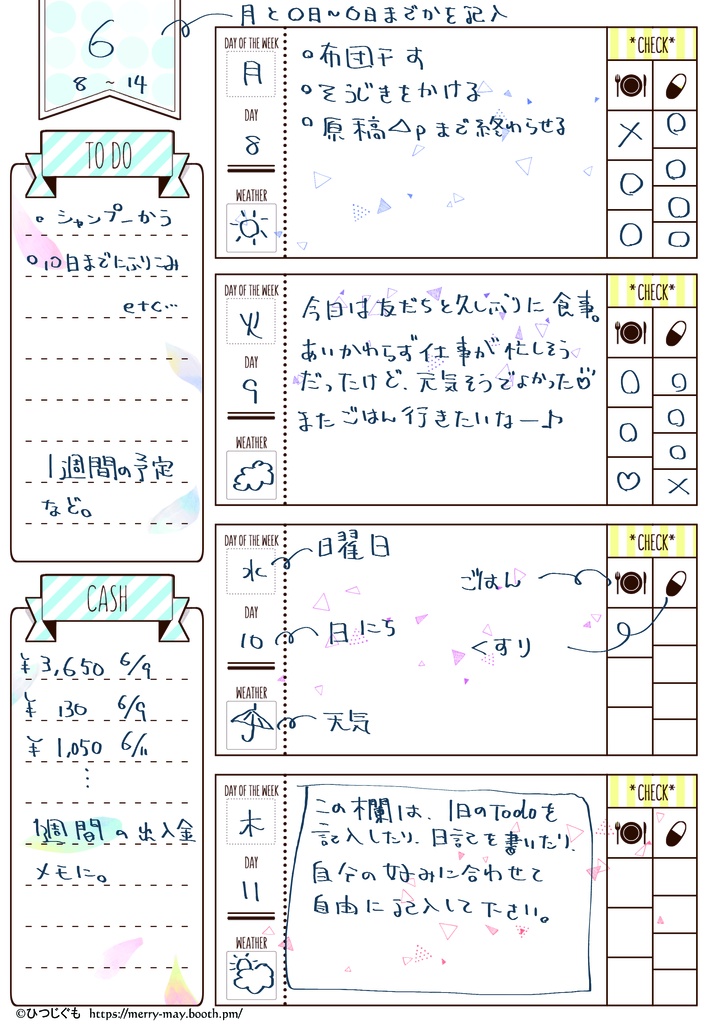 月と〇日〜〇日までかを記入
6
8 ~ 14
TO DO
シャンプーかう
10日までにふりこみ
etc…
1週間の予定
など。
CASH
¥3,650 6/9
¥ 130 6/9
¥1,050 6/11
⋮
1週間の出入金
メモに。
DAY OF THE WEEK
月
DAY
8
WEATHER
布団干す
そうじきをかける
原稿△pまで終わらせる
*CHECK*
× ○
○ ○
○ ○
○
DAY OF THE WEEK
火
DAY
9
WEATHER
今日は友だちと久しぶりに食事。
あいかわらず仕事が忙しそう
だったけど、元気そうでよかった♡
またごはん行きたいなー♪
*CHECK*
○ ○
○ ○
♡ ○
×
DAY OF THE WEEK
水
曜日
DAY
10
日にち
WEATHER
天気
ごはん
くすり
*CHECK*
DAY OF THE WEEK
木
DAY
11
WEATHER
この欄は、1日のTodoを
記入したり、日記を書いたり、
自分の好みに合わせて
自由に記入して下さい。
*CHECK*
©ひつじぐも https://merry-may.booth.pm/